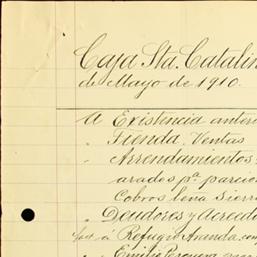 Caja Sta. Catalin
de Mayo de 1910.
A Existencia anteri
" Tienda, Ventas
" Arrendamientos
arados pa. parcio
Cobros lena Sierr
" Deudores y Acreedo
á Refugio Aranda, con
" Emilio